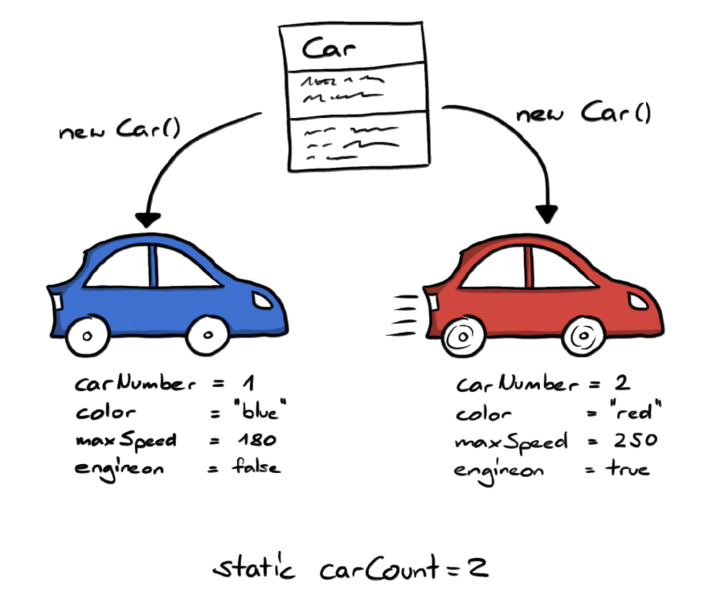 Car
new Car()
new Car()
carNumber = 1
color = "blue"
maxSpeed = 180
engineon = false
carNumber = 2
color = "red"
maxSpeed = 250
engineon = true
static carCount = 2